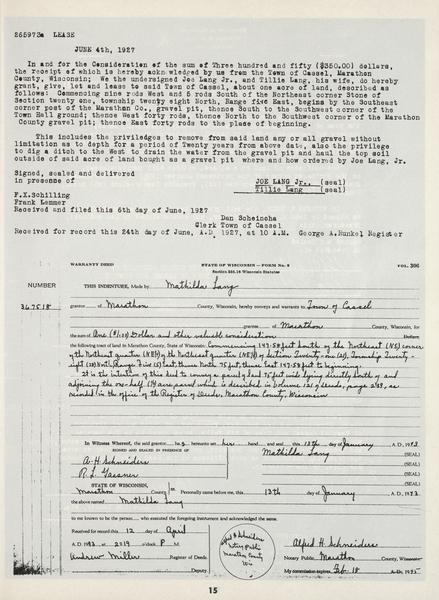 265973a LEASE
JUNE 4th, 1927
In and for the Consideration of the sum of Three hundred and fifty ($350.00) dollars,
the receipt of which is hereby acknwledged by us from the Town of Cassel, Marathon
County, Wisconsin; We the undersigned Joe Lang Jr., and Tillie Lang, his wife, do hereby
grant, give, let and lease to said Town of Cassel, about one acre of land, described as
follows: Commencing nine rods West and 5 rods South of the Northeast corner Stone of
Section twenty one, township twenty eight North, Range five East, begins by the Southeast
corner post of the Marathon Co., gravel pit, thence South to the Southwest corner of the
Town Hall ground; thence West forty rods, thence North to the Southwest corner of the Marathon
County gravel pit; thence East forty rods to the place of beginning.
This includes the priviledges to remove from said land any or all gravel without
limitation as to depth for a period of Twenty years from above date, also the privilege
to dig a ditch to the West to drain the water from the gravel pit and haul the top soil
outside of said acre of land bought as a gravel pit where and how ordered by Joe Lang, Jr.
Signed, sealed and delivered
in presence of JOE LANG Jr., (seal)
Tillie Lang (seal)
F.X.Schilling
Frank Lemmer
Received and filed this 6th day of June, 1927
Dan Scheincha
Clerk Town of Cassel
Received for record this 24th day of June, A.D 1927, at 10 A.M. George A.Runkel Register
WARRANTY DEED STATE OF WISCONSIN—FORM No. 9 VOL. 306
Section 235.16 Wisconsin Statutes
NUMBER THIS INDENTURE, Made by Mathilda Lang
367518 grantor of Marathon County, Wisconsin, hereby conveys and warrants to Town of Cassel
grantee of Marathon County, Wisconsin, for
the sum of One ($1.00) Dollar and other valuable consideration Dollars
the following tract of land in Marathon County, State of Wisconsin: Commencing 147.58 feet South of the Northeast (NE) corner
of the Northeast quarter (NE¼) of the Northeast quarter (NE¼) of Section Twenty-one (21), Township Twenty-
eight (28) North, Range Five (5) East, thence North 75 feet; thence East 147.58 feet to beginning.
It is the intention of this deed to convey a parcel of land 75 feet wide lying directly South of and
adjoining the one-half (½) acre parcel which is described in Volume 121 of Deeds, page 288, as
recorded in the office of the Register of Deeds, Marathon County, Wisconsin
In Witness Whereof, the said grantor has hereunto set her hand and seal this 13th day of January, A.D., 1933
SIGNED AND SEALED IN PRESENCE OF Mathilda Lang (SEAL)
A. H Schneiders (SEAL)
R. L Gassner (SEAL)
STATE OF WISCONSIN, (SEAL)
Marathon County ss. Personally came before me, this 13th day of January, A.D., 1933
the above named Mathilda Lang
to me known to be the person who executed the foregoing instrument and acknowledged the same.
Received for record this 12 day of April
A.D. 1933 at 2:19 o'clock P M.
Andrew Miller Register of Deeds
Deputy
Alfred H Schneiders
Notary Public
Marathon County
Wis
Alfred H. Schneiders
Notary Public, Marathon County, Wisconsin
My commission expires Feb 18 A.D. 1935
15